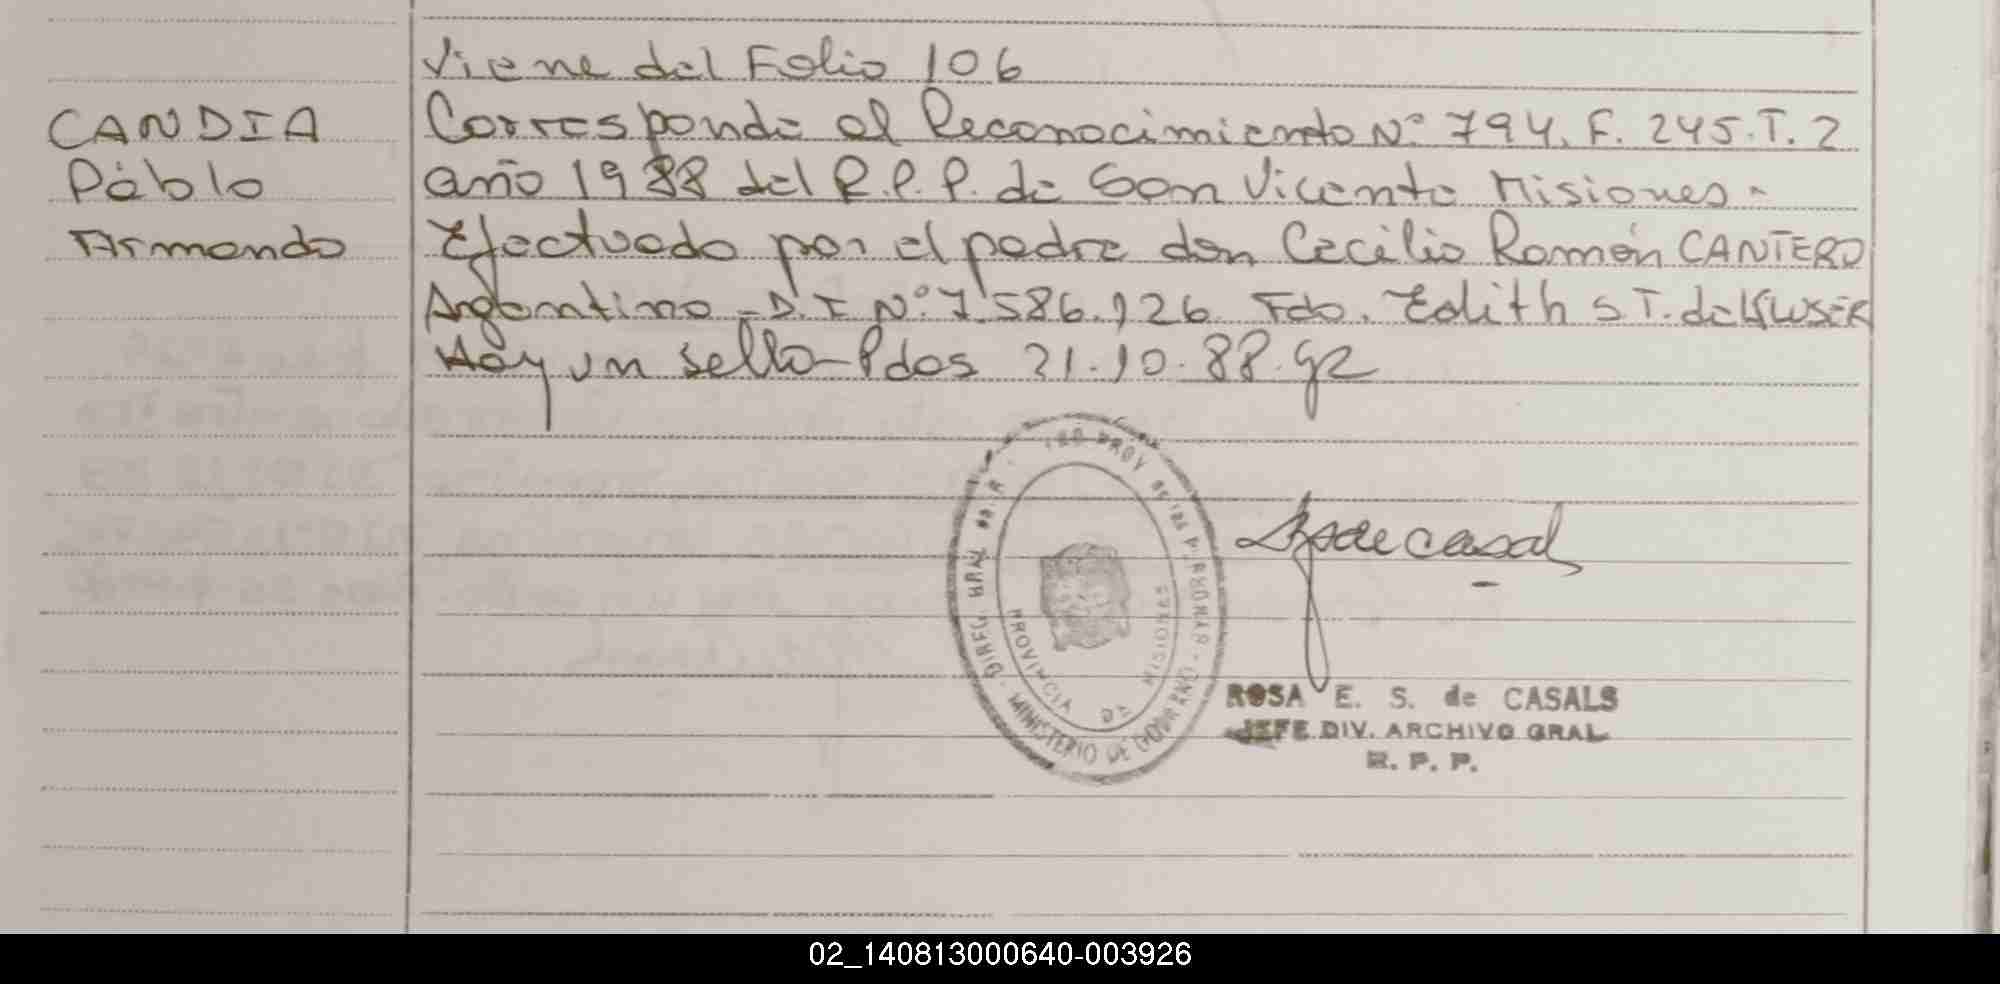 Viene del Folio 106
CANDIA
Pablo
Armando
Corresponde al Reconocimiento Nº 794. F. 245. T. 2
año 1988 del R.P.P. de San Vicente Misiones -
Efectuado por el padre don Cecilio Ramón CANTERO
Argentino - D.I Nº 7.586.126 Fdo. Edith S T. de
Hay un sello - Pdas 21.10.88.
DIREC. GRAL
REG PROV DE LAS PERSONAS - MINISTERIO DE GOBIERNO
PROVINCIA DE MISIONES
ROSA E. S. de CASALS
JEFE DIV. ARCHIVO GRAL
R. P. P.
02_140813000640-003926